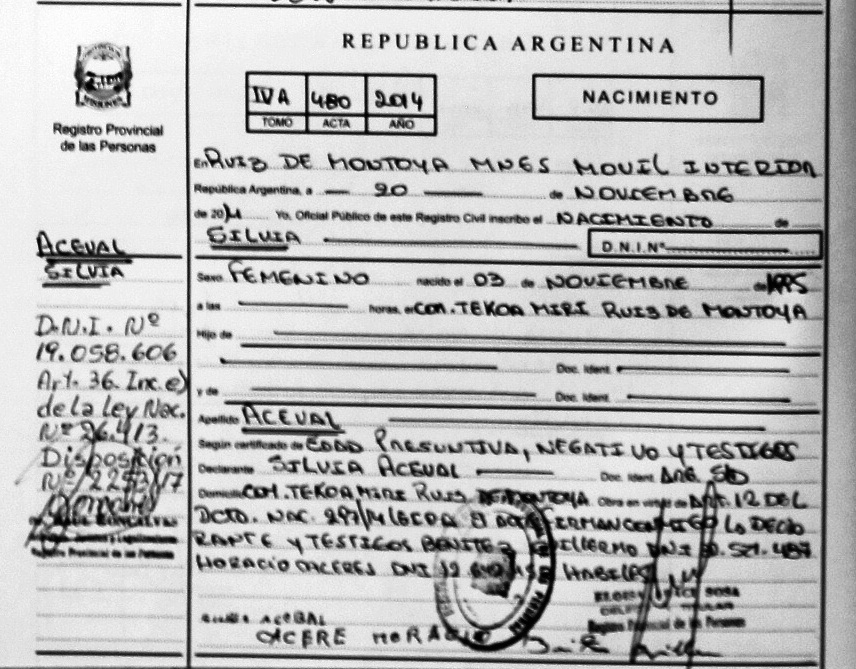 REPUBLICA ARGENTINA
IVA 480 2014
TOMO ACTA AÑO
NACIMIENTO
Registro Provincial
de las Personas
En RUIZ DE MONTOYA MNES MOVIL INTERIOR
República Argentina, a 20 de NOVIEMBRE
de 20 Yo, Oficial Público de este Registro Civil inscribo el NACIMIENTO de
SILVIA
D.N.I.Nº
ACEVAL
SILVIA
D.N.I. Nº
19.058.606
Art. 36. Inc. e)
de la ley Nac.
Nº 26.413.
Disposición
Nº 2253/17
Registro Provincial de las Personas
Sexo FEMENINO nacido el 03 de NOVIEMBRE de 1995
a las horas, en COM. TEKOA MIRI RUIZ DE MONTOYA
Hijo de
Doc. Ident.
y de Doc. Ident.
Apellido ACEVAL
Según certificado de EDAD PRESUNTIVA, NEGATIVO Y TESTIGOS
Declarante SILVIA ACEVAL Doc. Ident
Domicilio COM. TEKOA MIRI RUIZ DE MONTOYA Obra en virtud de ART. 12 DEL
DCTO. NAC. 297/14 FIRMAN CONMIGO LA DECLA
RANTE Y TESTIGOS BENITEZ GUILLERMO DNI 521.487
HORACIO CACERES DNI HABILES
SOSA
TITULAR
Registro Provincial de las Personas
CACERE HORACIO